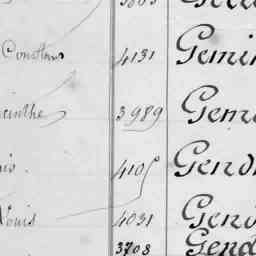 Constans 4131 Gemin
cinthe 3989 Gem
4105 Gend
Louis 4031 Gend
3708 Gend